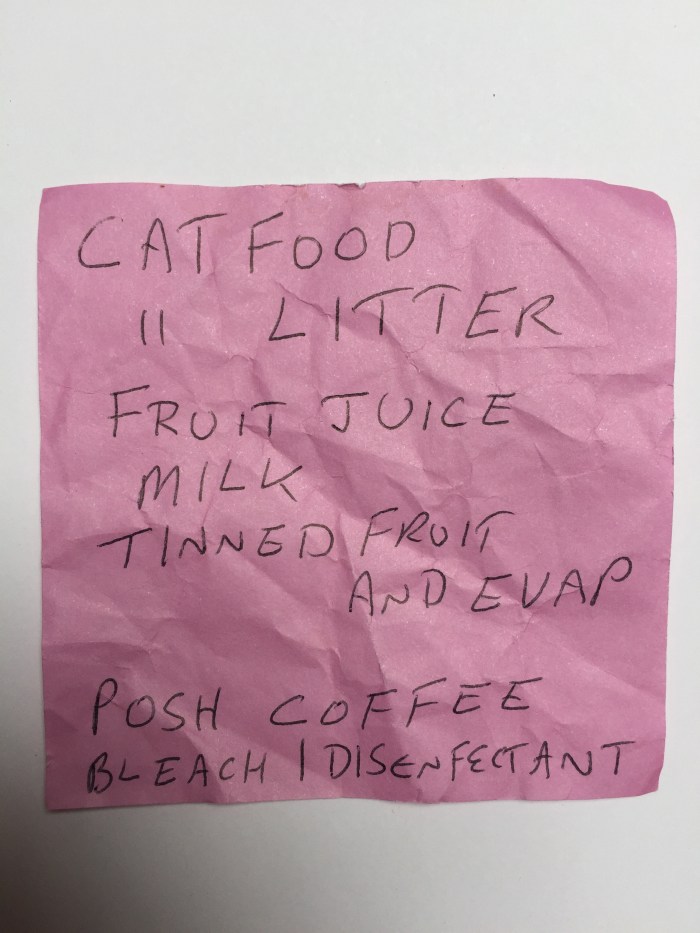 CAT FOOD
" LITTER
FRUIT JUICE
MILK
TINNED FRUIT
AND EVAP
POSH COFFEE
BLEACH / DISENFECTANT